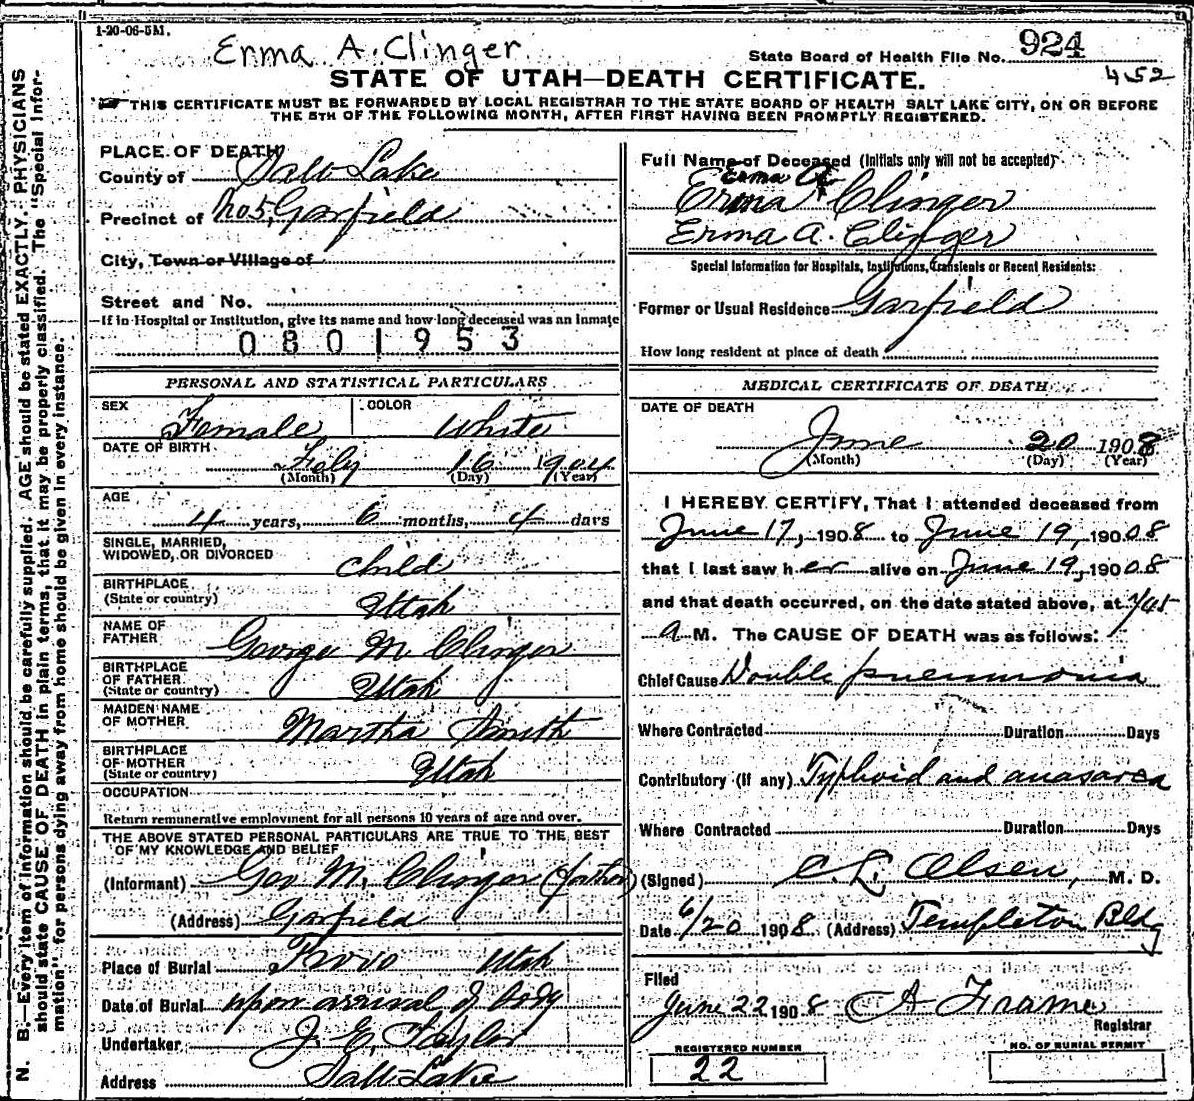 1-20-06-5M.
Erma A. Clinger
State Board of Health File No. 924
452
STATE OF UTAH—DEATH CERTIFICATE.
THIS CERTIFICATE MUST BE FORWARDED BY LOCAL REGISTRAR TO THE STATE BOARD OF HEALTH SALT LAKE CITY, ON OR BEFORE
THE 5TH OF THE FOLLOWING MONTH, AFTER FIRST HAVING BEEN PROMPTLY REGISTERED.
N. B.—Every item of information should be carefully supplied. AGE should be stated EXACTLY. PHYSICIANS
should state CAUSE OF DEATH in plain terms, that it may be properly classified. The "Special Infor-
mation" for persons dying away from home should be given in every instance.
PLACE OF DEATH
County of Salt Lake
Precinct of No 5, Garfield
City, Town or Village of
Street and No.
If in Hospital or Institution, give its name and how long deceased was an inmate
0801953
PERSONAL AND STATISTICAL PARTICULARS
SEX Female COLOR White
DATE OF BIRTH Feby 16 1904
(Month) (Day) (Year)
AGE
4 years, 6 months, 4 days
SINGLE, MARRIED,
WIDOWED, OR DIVORCED Child
BIRTHPLACE
(State or country) Utah
NAME OF
FATHER George M. Clinger
BIRTHPLACE
OF FATHER
(State or country) Utah
MAIDEN NAME
OF MOTHER Martha Smith
BIRTHPLACE
OF MOTHER
(State or country) Utah
OCCUPATION
Return remunerative employment for all persons 10 years of age and over.
THE ABOVE STATED PERSONAL PARTICULARS ARE TRUE TO THE BEST
OF MY KNOWLEDGE AND BELIEF
(Informant) Geo M. Clinger (father)
(Address) Garfield
Place of Burial Provo Utah
Date of Burial upon arrival of body
Undertaker J. E. Taylor
Address Salt Lake
Full Name of Deceased (Initials only will not be accepted)
Erma A
Erma Clinger
Erma A. Clinger
Special Information for Hospitals, Institutions, Transients or Recent Residents:
Former or Usual Residence Garfield
How long resident at place of death
MEDICAL CERTIFICATE OF DEATH
DATE OF DEATH
June 20 1908
(Month) (Day) (Year)
I HEREBY CERTIFY, That I attended deceased from
June 17, 1908 to June 19, 1908
that I last saw her alive on June 19, 1908
and that death occurred, on the date stated above, at 7/45
a M. The CAUSE OF DEATH was as follows:
Chief Cause Double pneumonia
Where Contracted Duration Days
Contributory (if any) Typhoid and anasarca
Where Contracted Duration Days
(Signed) C. L. Olsen, M. D.
Date 6/20 1908. (Address) Templeton Bldg
Filed
June 22 1908 A Frame
Registrar
REGISTERED NUMBER
22
NO. OF BURIAL PERMIT